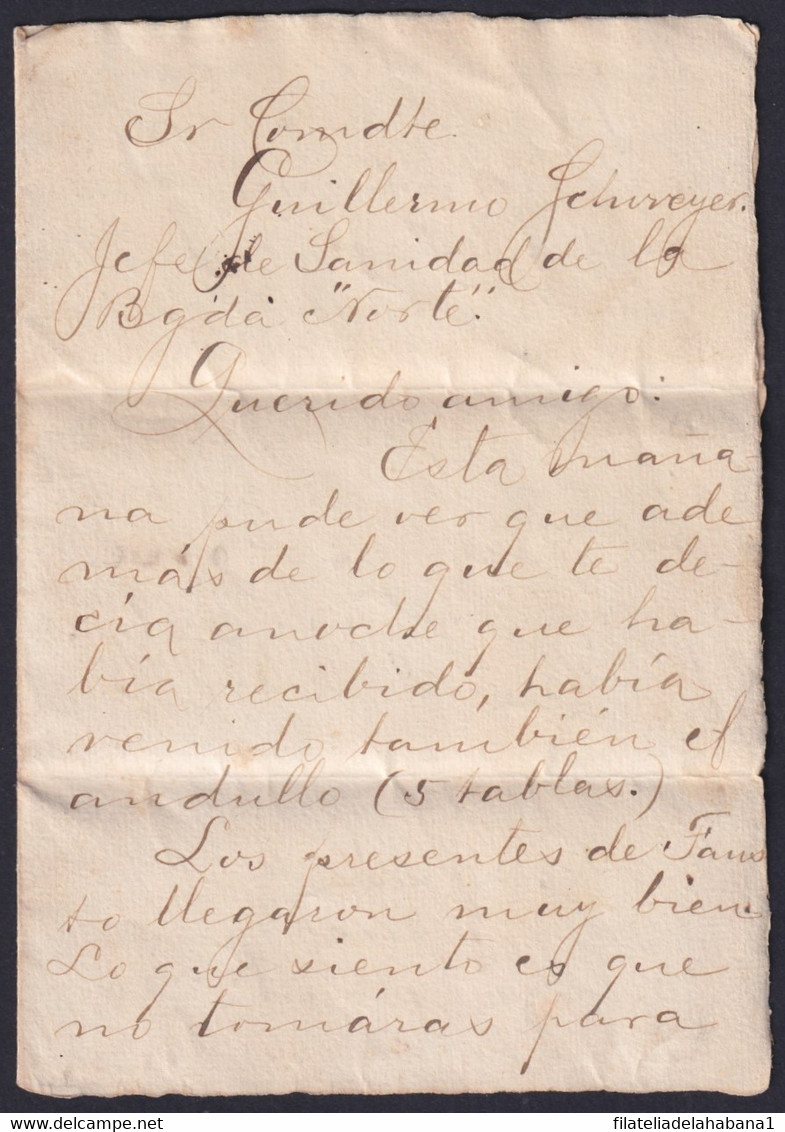 Sr Comdte.
Guillermo Schweyer.
Jefe de Sanidad de la
Bgda "Norte".
Querido amigo:
Esta maña-
na pude ver que ade
más de lo que te de-
cía anoche que ha-
bía recibido, había
venido también el
andullo (5 tablas.)
Los presentes de Faus
to llegaron muy bien
Lo que siento es que
no tomáras para
delcampe.net
filateliadelahabana1